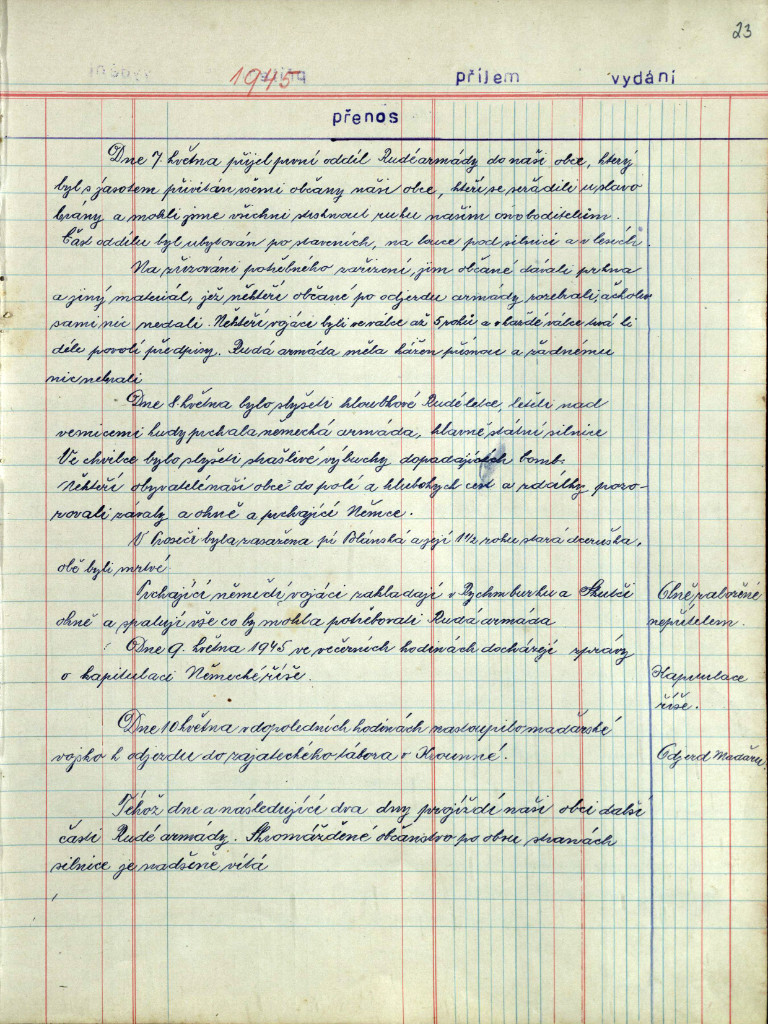 23
1945
příjem vydání
přenos
Dne 7. května přijel první oddíl Rudé armády do naší obce, který
byl s jásotem přivítán všemi občany naší obce, kteří se seřadili u slavo
brány a mohli jsme všichni stisknout ruku našim osvoboditelům.
Část oddílu byl ubytován po staveních, na louce pod silnicí a v lesích.
Na zřizování potřebného zařízení, jim občané dávali prkna
a jiný materiál, jež někteří občané po odjezdu armády rozebrali, ačkoliv
sami nic nedali. Někteří vojáci byli ve válce až 5 roků a v každé válce trvá li
déle povolí předpisy. Rudá armáda měla kázeň přísnou a žádnému
nic nebrali
Dne 8. května bylo slyšeti hloubkové Rudé letce, letěli nad
vesnicemi kudy prchala německá armáda, hlavně státní silnice
Ve chvilce bylo slyšeti strašlivé výbuchy dopadajících bomb.
Někteří obyvatelé naší obce do polí a hlubokých cest a zdálky pozo-
rovali závaly a ohně a prchající Němce.
V Proseči byla zasažena pí Polánská a její 1 1/2 roku stará dceruška,
obě byli mrtvé.
Prchající němečtí vojáci zakladají v Rychmburku a Skutči
ohně a spalují vše co by mohla potřebovali Rudá armáda
Ohně založené
nepřítelem.
Dne 9. května 1945 ve večerních hodinách docházejí zprávy
o kapitulaci Německé říše.
Kapitulace
říše.
Dne 10 května v dopoledních hodinách nastoupilo maďarské
vojsko k odjezdu do zajateckého tábora v Krouně.
Odjezd Maďarů.
Téhož dne a následující dva dny projíždí naší obcí další
části Rudé armády. Shromážděné občanstvo po obou stranách
silnice je nadšeně vítá